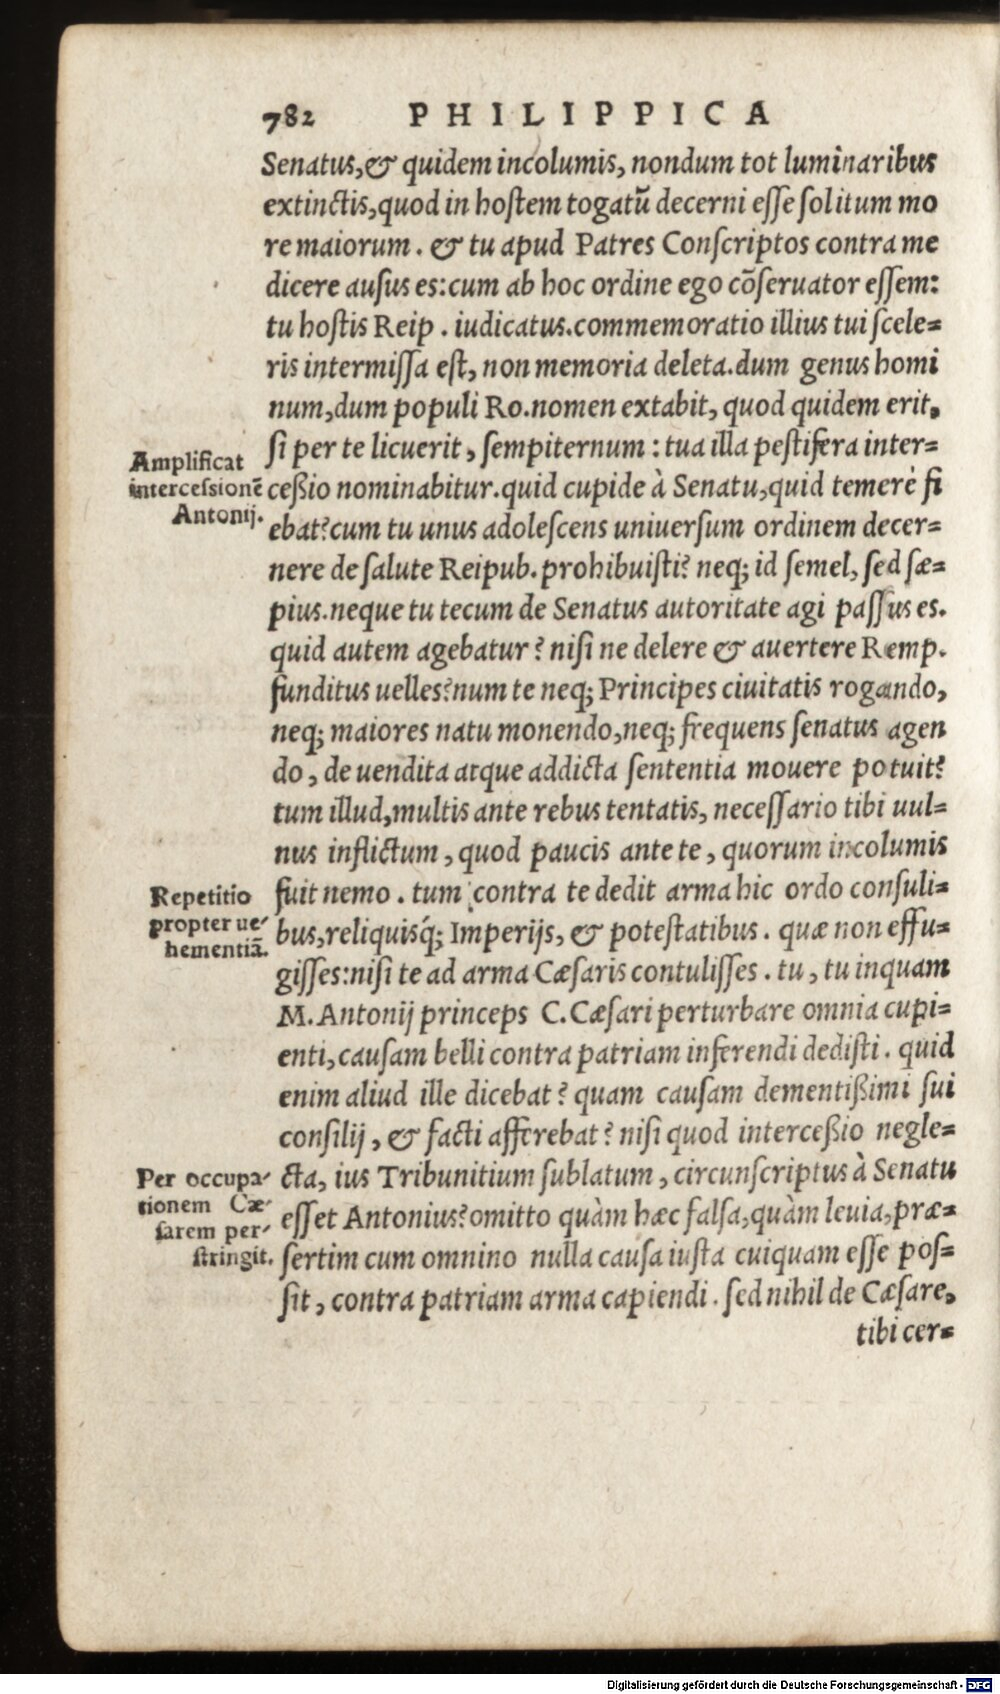 782 PHILIPPICA
Senatus,& quidem incolumis, nondum tot luminaribus
extinctis,quod in hostem togatū decerni esse solitum mo
re maiorum. & tu apud Patres Conscriptos contra me
dicere ausus es:cum ab hoc ordine ego cōseruator essem:
tu hostis Reip. iudicatus.commemoratio illius tui scele=
ris intermissa est, non memoria deleta.dum genus homi
num,dum populi Ro.nomen extabit, quod quidem erit,
si per te licuerit, sempiternum: tua illa pestifera inter=
Amplificat
intercessionē
Antonij.
ceßio nominabitur.quid cupide à Senatu,quid temerè fi
ebat?cum tu unus adolescens uniuersum ordinem decer=
nere de salute Reipub.prohibuisti? neq; id semel, sed sæ=
pius.neque tu tecum de Senatus autoritate agi passus es.
quid autem agebatur? nisi ne delere & auertere Remp.
funditus uelles?num te neq; Principes ciuitatis rogando,
neq; maiores natu monendo,neq; frequens senatus agen
do, de uendita atque addicta sententia mouere potuit?
tum illud,multis ante rebus tentatis, necessario tibi uul=
nus inflictum, quod paucis ante te, quorum incolumis
Repetitio
propter ue=
hementiā.
fuit nemo. tum contra te dedit arma hic ordo consuli=
bus,reliquisq́; Imperijs, & potestatibus. quæ non effu=
gisses:nisi te ad arma Cæsaris contulisses. tu, tu inquam
M. Antonij princeps C. Cæsari perturbare omnia cupi=
enti,causam belli contra patriam inferendi dedisti. quid
enim aliud ille dicebat? quam causam dementißimi sui
consilij, & facti afferebat? nisi quod interceßio negle=
Per occupa=
tionem Cæ=
sarem per=
stringit.
cta, ius Tribunitium sublatum, circunscriptus à Senatu
esset Antonius?omitto quàm hæc falsa,quàm leuia,præ=
sertim cum omnino nulla causa iusta cuiquam esse pos=
sit, contra patriam arma capiendi. sed nihil de Cæsare,
tibi cer=
Digitalisierung gefördert durch die Deutsche Forschungsgemeinschaft - DFG